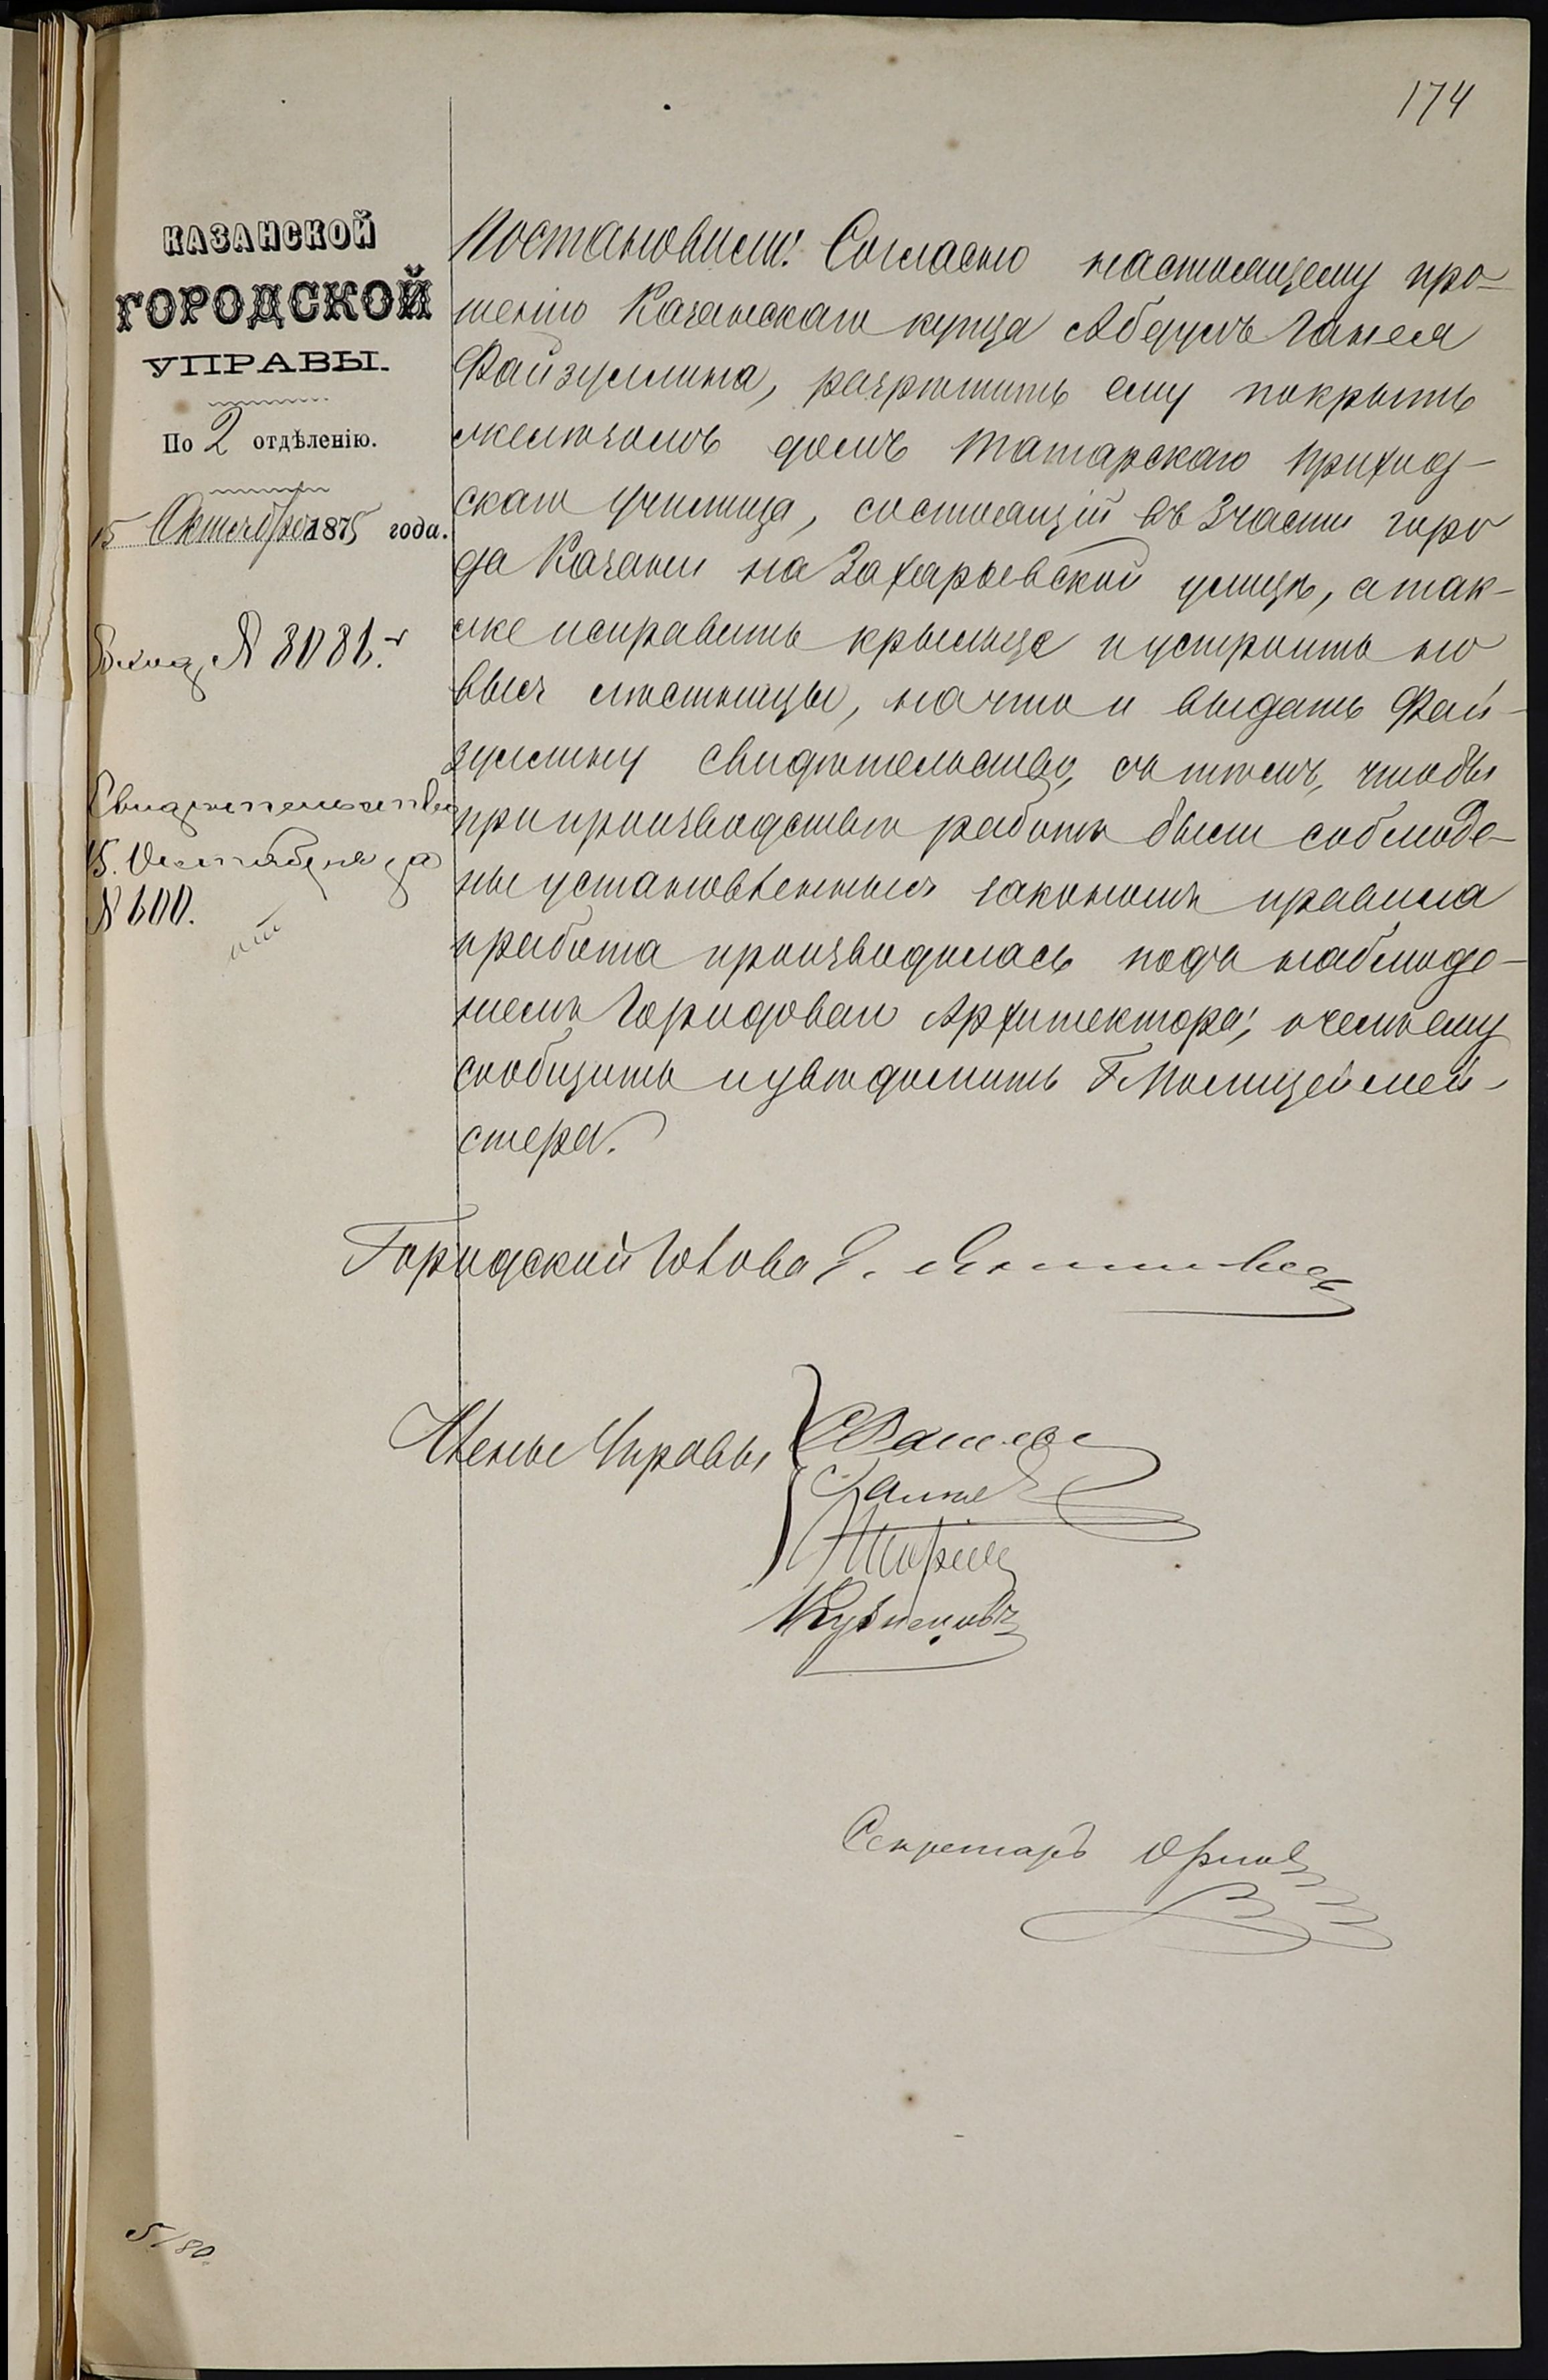 174
КАЗАНСКОЙ
ГОРОДСКОЙ
УПРАВЫ.
По 2 отдѣленію.
15 Октября 1875 года.
Вход. № 8081.
Свидѣтельство
15. Октября за
№ 600.
Постановили: Согласно настоящему про-
шенію Казанскаго купца Абдулъ Ганея
Файзуллина, разрѣшить ему покрыть
желѣзомъ домъ Татарскаго приход-
скаго училища, состоящій въ 3 части горо
да Казани на Захарьевской улицѣ, а так-
же исправить крыльце и устроить но
выя лѣстницы, на что и выдать Фай-
зуллину свидѣтельство, съ тѣмъ, чтобы
при производствѣ работъ были соблюде-
ны установленныя закономъ правила
и работа производилась подъ наблюде-
ніемъ Городоваго Архитектора; о чемъ ему
сообщить и увѣдомить Г. Полицеймей-
стера.
Городской Голова Э. Янишевскій
Члены Управы
Кузнецовъ
Секретарь Орловъ
5/80.